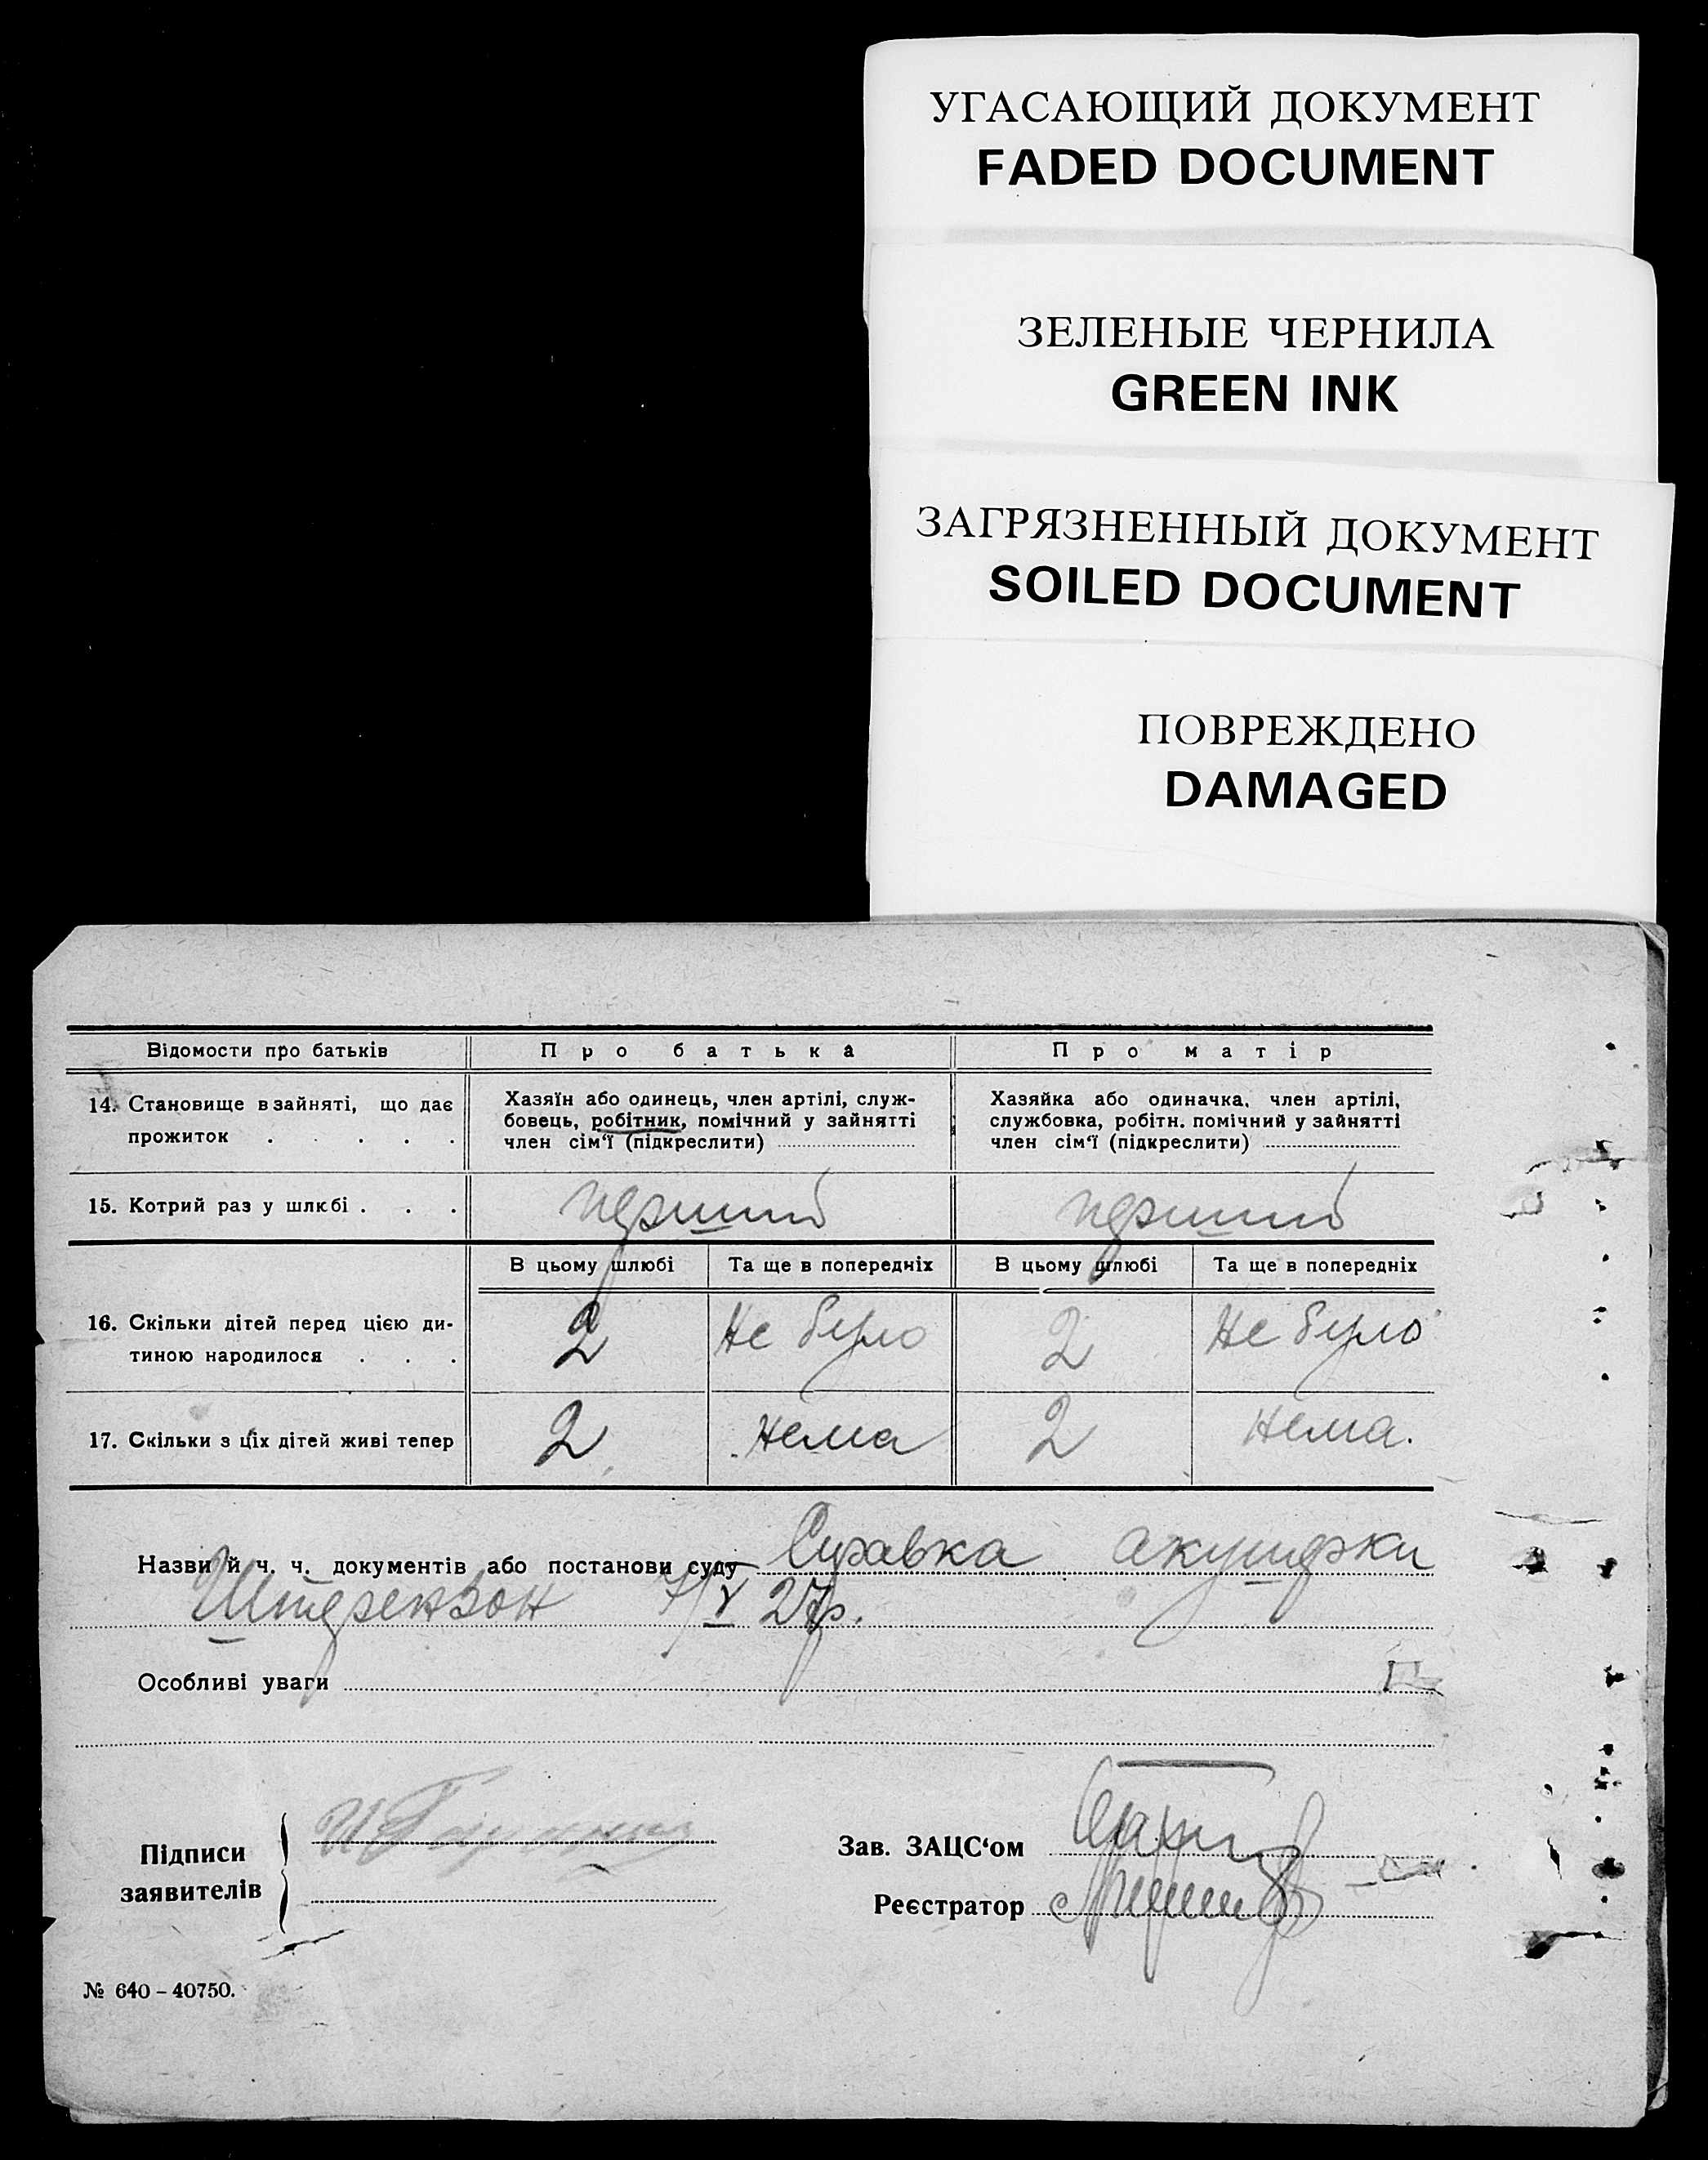 УГАСАЮЩИЙ ДОКУМЕНТ
FADED DOCUMENT
ЗЕЛЕНЫЕ ЧЕРНИЛА
GREEN INK
ЗАГРЯЗНЕННЫЙ ДОКУМЕНТ
SOILED DOCUMENT
ПОВРЕЖДЕНО
DAMAGED
Відомости про батьків Про батька Про матір
14. Становище в зайняті, що дає
прожиток . . . . .
Хазяїн або одинець, член артілі, служ-
бовець, робітник, помічний у зайнятті
член сім'ї (підкреслити)
Хазяйка або одиначка, член артілі,
службовка, робітн. помічний у зайнятті
член сім'ї (підкреслити)
15. Котрий раз у шлюбі . . . перший перший
В цьому шлюбі Та ще в попередніх В цьому шлюбі Та ще в попередніх
16. Скільки дітей перед цією ди-
тиною народилося . . . 2 Не було 2 Не було
17. Скільки з ціх дітей живі тепер 2 Нема 2 Нема.
Назви й ч. ч. документів або постанови суду Справка акушерки
Штерензон 7/V 27р.
Особливі уваги
Підписи
заявителів
Зав. ЗАЦС'ом
Реєстратор
№ 640 – 40750.